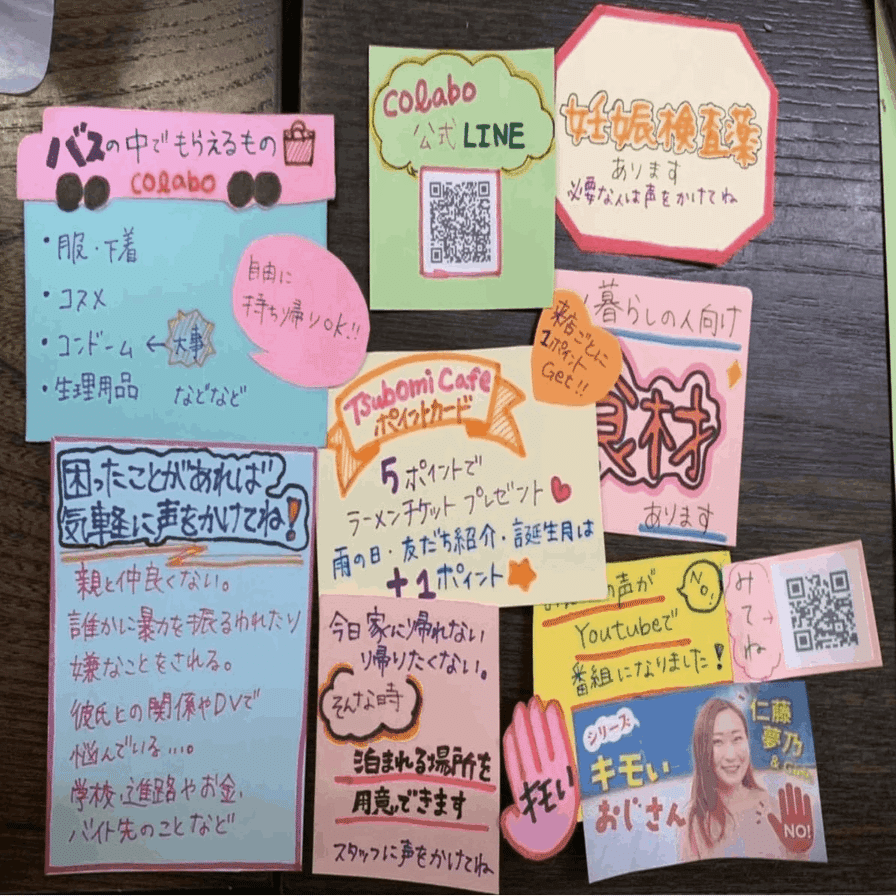 バスの中でもらえるもの
colabo
・服・下着
・コスメ
・コンドーム ← 大事
・生理用品 などなど
自由に
持ち帰りOK!!
colabo
公式 LINE
妊娠検査薬
あります
必要な人は声をかけてね
暮らしの人向け
食材
あります
来店ごとに
1ポイント
Get!!
Tsubomi Cafe
ポイントカード
5ポイントで
ラーメンチケット プレゼント
雨の日・友だち紹介・誕生月は
+1ポイント
困ったことがあれば
気軽に声をかけてね!
親と仲良くない。
誰かに暴力を振るわれたり
嫌なことをされる。
彼氏との関係やDVで
悩んでいる...。
学校、進路やお金、
バイト先のことなど
今日家に帰れない
帰りたくない。
そんな時
泊まれる場所を
用意できます
スタッフに声をかけてね
の声が
NO!
Youtubeで
番組になりました!
みてね→
キモい
シリーズ
キモい
おじさん
仁藤
夢乃
NO!